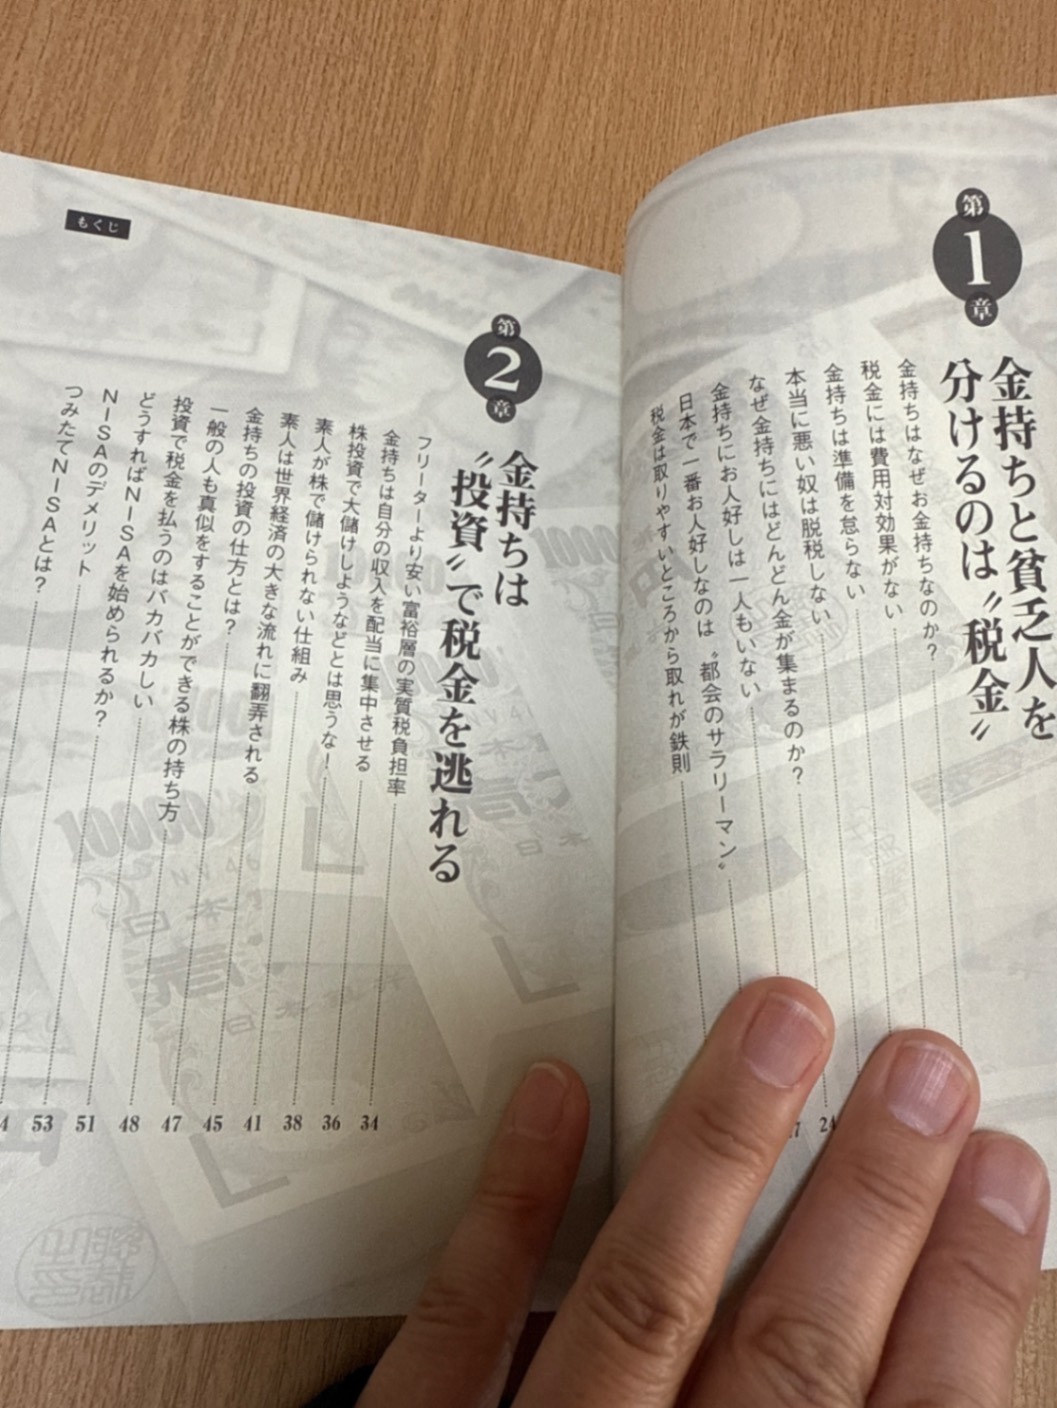 第1章
金持ちと貧乏人を
分けるのは〝税金〟
金持ちはなぜお金持ちなのか?
税金には費用対効果がない
金持ちは準備を怠らない
本当に悪い奴は脱税しない 24
なぜ金持ちにはどんどん金が集まるのか?
金持ちにお人好しは一人もいない
日本で一番お人好しなのは〝都会のサラリーマン〟
税金は取りやすいところから取れが鉄則
もくじ
第2章
金持ちは
〝投資〟で税金を逃れる
フリーターより安い富裕層の実質税負担率 34
金持ちは自分の収入を配当に集中させる 36
株投資で大儲けしようなどとは思うな! 38
素人が株で儲けられない仕組み 41
素人は世界経済の大きな流れに翻弄される 45
金持ちの投資の仕方とは? 47
一般の人も真似をすることができる株の持ち方 48
投資で税金を払うのはバカバカしい 51
どうすればNISAを始められるか? 53
NISAのデメリット
つみたてNISAとは?